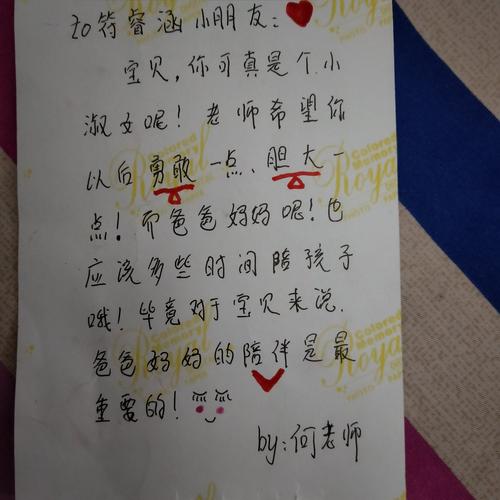 to符睿涵小朋友：
宝贝，你可真是个小
淑女呢！老师希望你
以后勇敢一点、胆大一
点！而爸爸妈妈呢！也
应该多些时间陪孩子
哦！毕竟对于宝贝来说.
爸爸妈妈的陪伴是最
重要的！
by：何老师